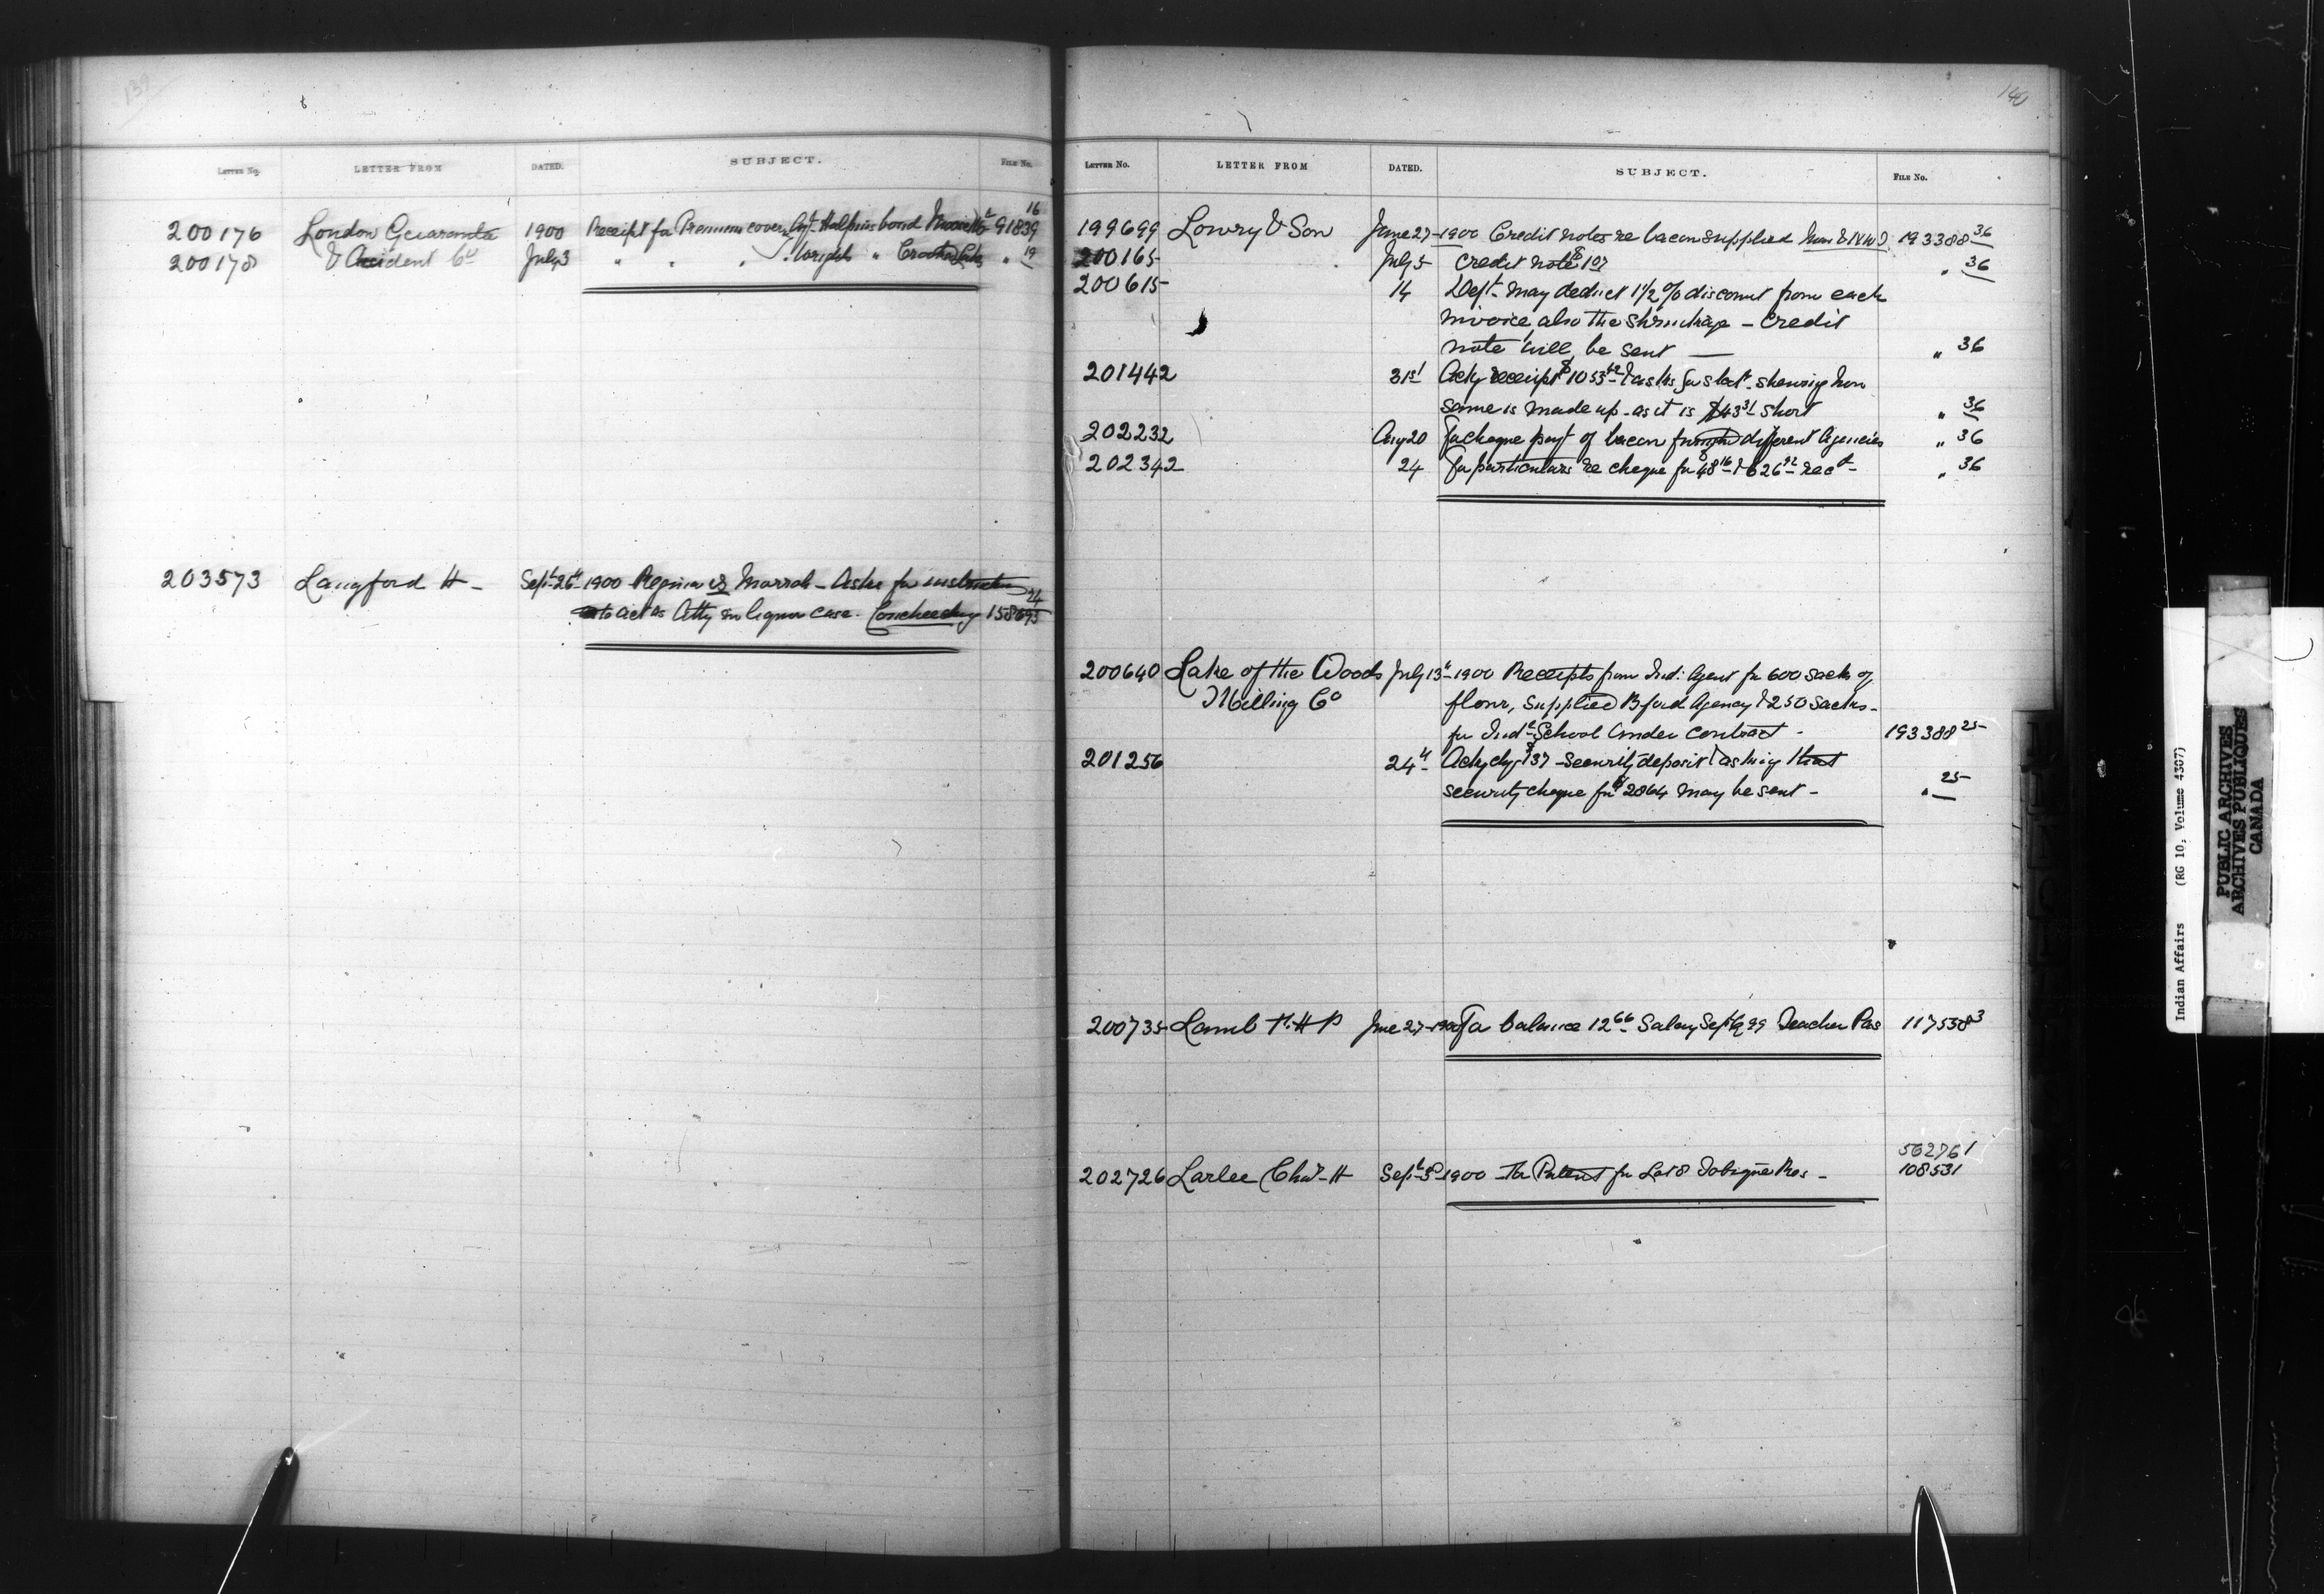 139
LETTER NO. LETTER FROM DATED. SUBJECT. FILE NO.
200176 London Guarantee 1900 Receipt for Premium cover Agt Halpins bond 91839 16
200178 & Accident Co July 3 " " " Wright " Crooked Lake " 19
203573 Langford H - Sept 26th 1900 Regina vs Marrah - Asks for instruction
to act as Atty in liquor case. Couchiching 158693 24
140
LETTER NO. LETTER FROM DATED. SUBJECT. FILE NO.
199699 Lowry & Son June 27 - 1900 Credit notes re bacon supplied Man & NWT 193388 36
200165 July 5 Credit note $1.07 " 36
200615 14 Dept may deduct 1 1/2 % discount from each
invoice, also the shrinkage - Credit
note will be sent — " 36
201442 31st Ackg receipt $1053 & asks for stat. shewing how
same is made up - as it is $43 31 short " 36
202232 Aug 20 For cheque payt of bacon different Agencies " 36
202342 24 For particulars re cheque for $48 16 & $626 92 recd - " 36
200640 Lake of the Woods July 13th - 1900 Receipts from Ind: Agent for 600 sacks of
Milling Co flour, supplied Bford Agency & 250 sacks -
for Indl School under contract - 193388 25
201256 24th Ackg chq $137 - security deposit & asking that
security cheque for $2064 may be sent - " 25
200735 Lamb H P June 27 - 1900 For balance 12 66 Salary Sept Q 99 Teacher Pas 117538 3
562761
202726 Larlee Chas H Sept 3d 1900 - For Patent for Lot 8 Tobique Res - 108531
Indian Affairs (RG 10, Volume 4307)
PUBLIC ARCHIVES
ARCHIVES PUBLIQUES
CANADA